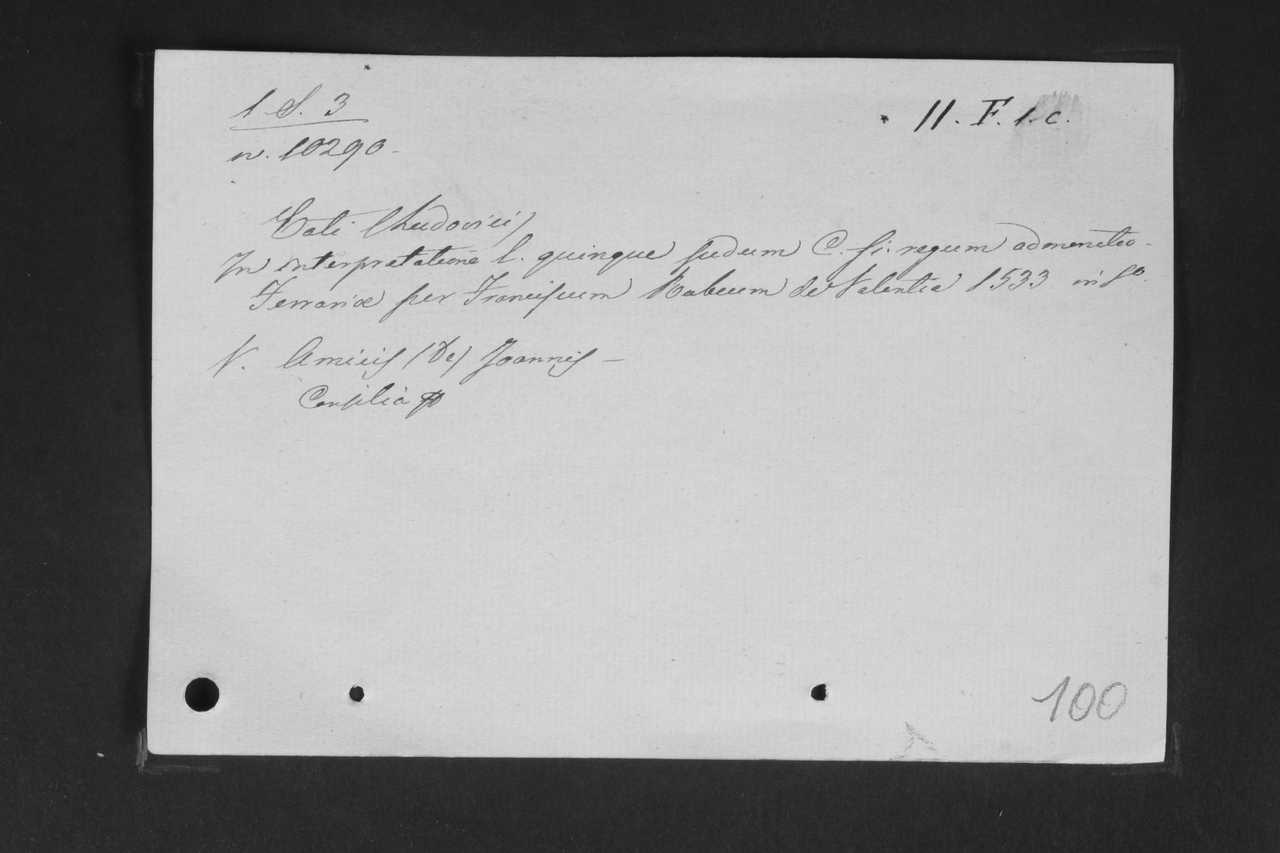 1 S. 3
11. F. 1. c.
n. 10290-
Cati (Ludovici)
In interpretatione l. quinque pedum C. fi. regum
Ferrariæ per Franciscum de Valentia 1533 in fo.
V. Amicis (De) Joannis —
Consilia
100